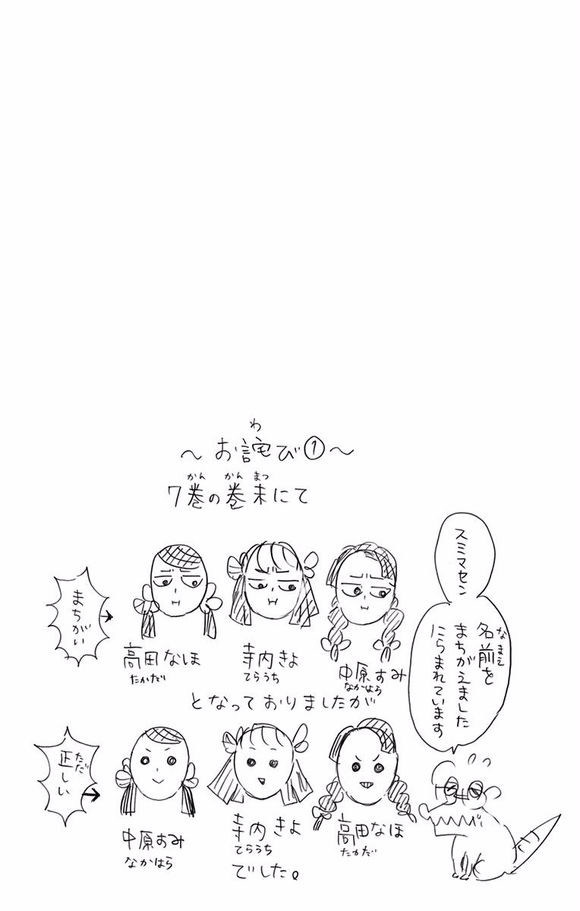 ～お詫び①～
わ
7巻の巻末にて
かん かん まつ
まちがい
高田なほ
たかだ
寺内きよ
てらうち
中原すみ
なかはら
となっておりましたが
スミマセン
名前を
なまえ
まちがえました
にらまれています
正しい
ただ
中原すみ
なかはら
寺内きよ
てらうち
高田なほ
たかだ
でした。